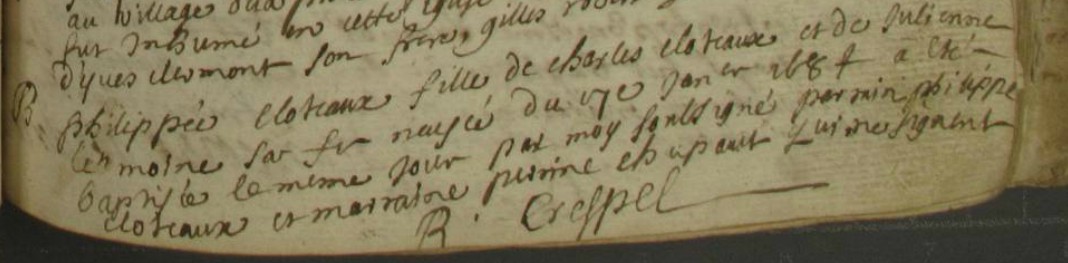 au village
fut Inhumé en cette Eglise gilles
d'yves clermont son frere,
B philippée cloteaux fille de charles cloteaux et de Julienne
le moine sa fe naysée du 17e Janer 1684 a eté
baptisée le meme jour par moy soulsigné parrain philippe
cloteaux et marraine perrine chupaut qui ne signent
R. Crespel